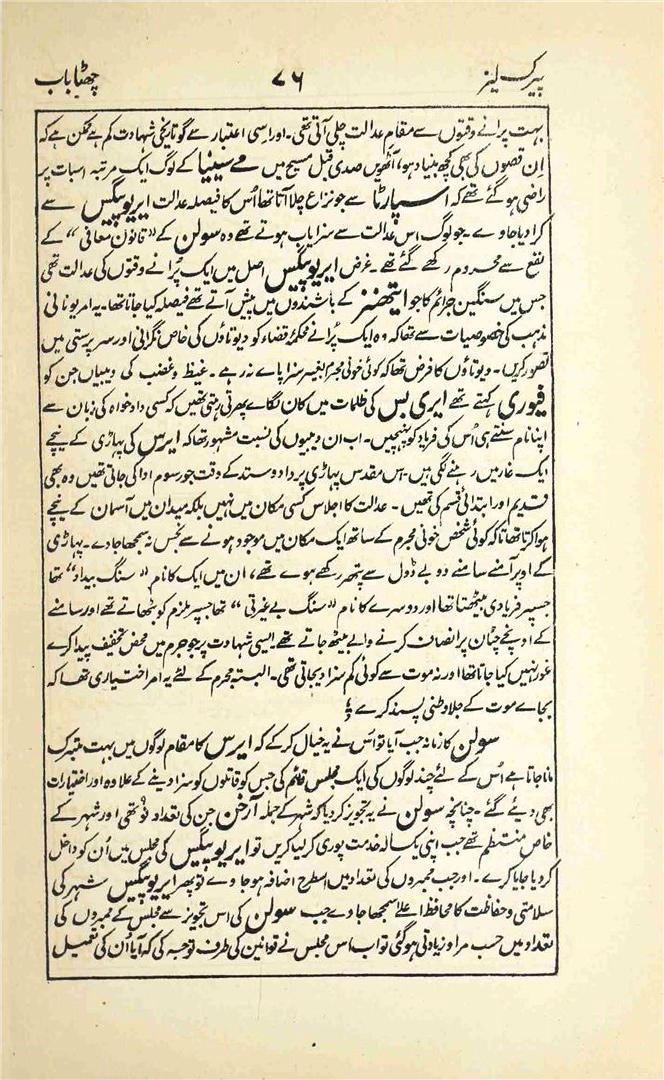 پیرک لیز ۷۶ چھٹا باب
بہت پرانے وقتوں سے مقام عدالت چلی آتی تھی۔ اور اسی اعتبار سے گو تاریخی شہادت کم ہے ممکن ہے کہ
ان قصوں کی بھی کچھ بنیاد ہو، آٹھویں صدی قبل مسیح میں مے سینیا کے لوگ ایک مرتبہ اسبات پر
راضی ہو گئے تھے کہ اسپارٹا سے جو نزاع چلا آتا تھا اُس کا فیصلہ عدالت ایریوپیگس سے
کرا دیا جاوے۔ جو لوگ اس عدالت سے سزایاب ہوتے تھے وہ سولن کے "قانون معافی" کے
نفع سے محروم رکھے گئے تھے۔ غرض ایریوپیگس اصل میں ایک پُرانے وقتوں کی عدالت تھی
جس میں سنگین جرائم کا جو ایتھنز کے باشندوں میں پیش آتے تھے فیصلہ کیا جاتا تھا۔ یہ امر یونانی
مذہب کی خصوصیات سے تھا کہ وہ ایک پُرانے محکمۂ قضاء کو دیوتاؤں کی خاص نگرانی اور سرپرستی میں
تصور کریں۔ دیوتاؤں کا فرض تھا کہ کوئی خونی مجرم بغیر سزا پاے نہ رہے۔ غیظ و غضب کی دیبیاں جن کو
فیوری کہتے تھے ایری بس کی ظلمات میں کان لگاے پھرتی رہتی تھیں کہ کسی داد خواہ کی زبان سے
اپنا نام سنتے ہی اُس کی فریاد کو پہنچیں۔ اب ان دیبیوں کی نسبت مشہور تھا کہ ایرس کی پہاڑی کے نیچے
ایک غار میں رہنے لگی ہیں۔ اس مقدس پہاڑی پر داد و ستد کے وقت جو رسوم ادا کی جاتی تھیں وہ بھی
قدیم اور ابتدائی قسم کی تھیں۔ عدالت کا اجلاس کسی مکان میں نہیں بلکہ میدان میں آسمان کے نیچے
ہوا کرتا تھا تاکہ کوئی شخص خونی مجرم کے ساتھ ایک مکان میں موجود ہونے سے نجس نہ سمجھا جاوے۔ پہاڑی
کے اوپر آمنے سامنے دو بے ڈول سے پتھر رکھے ہوے تھے، ان میں ایک کا نام "سنگ بیداد" تھا
جسپر فریادی بیٹھتا تھا اور دوسرے کا نام "سنگ بے غیرتی" تھا جسپر ملزم کو بٹھاتے تھے اور سامنے
کے اونچے چٹان پر انصاف کرنے والے بیٹھ جاتے تھے ایسی شہادت پر جو جرم میں محض تخفیف پیدا کرے
غور نہیں کیا جاتا تھا اور نہ موت سے کوئی کم سزا دیجاتی تھی۔ البتہ مجرم کے لئے یہ امر اختیاری تھا کہ
بجاے موت کے جلاوطنی پسند کرے
سولن کا زمانہ جب آیا تو اُس نے یہ خیال کر کے کہ ایرس کا مقام لوگوں میں بہت متبرک
مانا جاتا ہے اُس کے لئے چند لوگوں کی ایک مجلس قائم کی جس کو قاتلوں کو سزا دینے کے علاوہ اور اختیارات
بھی دیئے گئے۔ چنانچہ سولن نے یہ تجویز کر دیا کہ شہر کے جملہ آرخن جن کی تعداد نَو تھی اور شہر کے
خاص منتظم تھے جب اپنی یک سالہ خدمت پوری کر لیا کریں تو ایریوپیگس کی مجلس میں اُن کو داخل
کر دیا جایا کرے۔ اور جب ممبروں کی تعداد میں اسطرح اضافہ ہو جاوے تو پھر ایریوپیگس شہر کی
سلامتی و حفاظت کا محافظ اعلےٰ سمجھا جاوے جب سولن کی اس تجویز سے مجلس کے ممبروں کی
تعداد میں حسب مراد زیادتی ہو گئی تو اب اس مجلس نے قوانین کی طرف توجہ کی کہ آیا اُن کی تعمیل